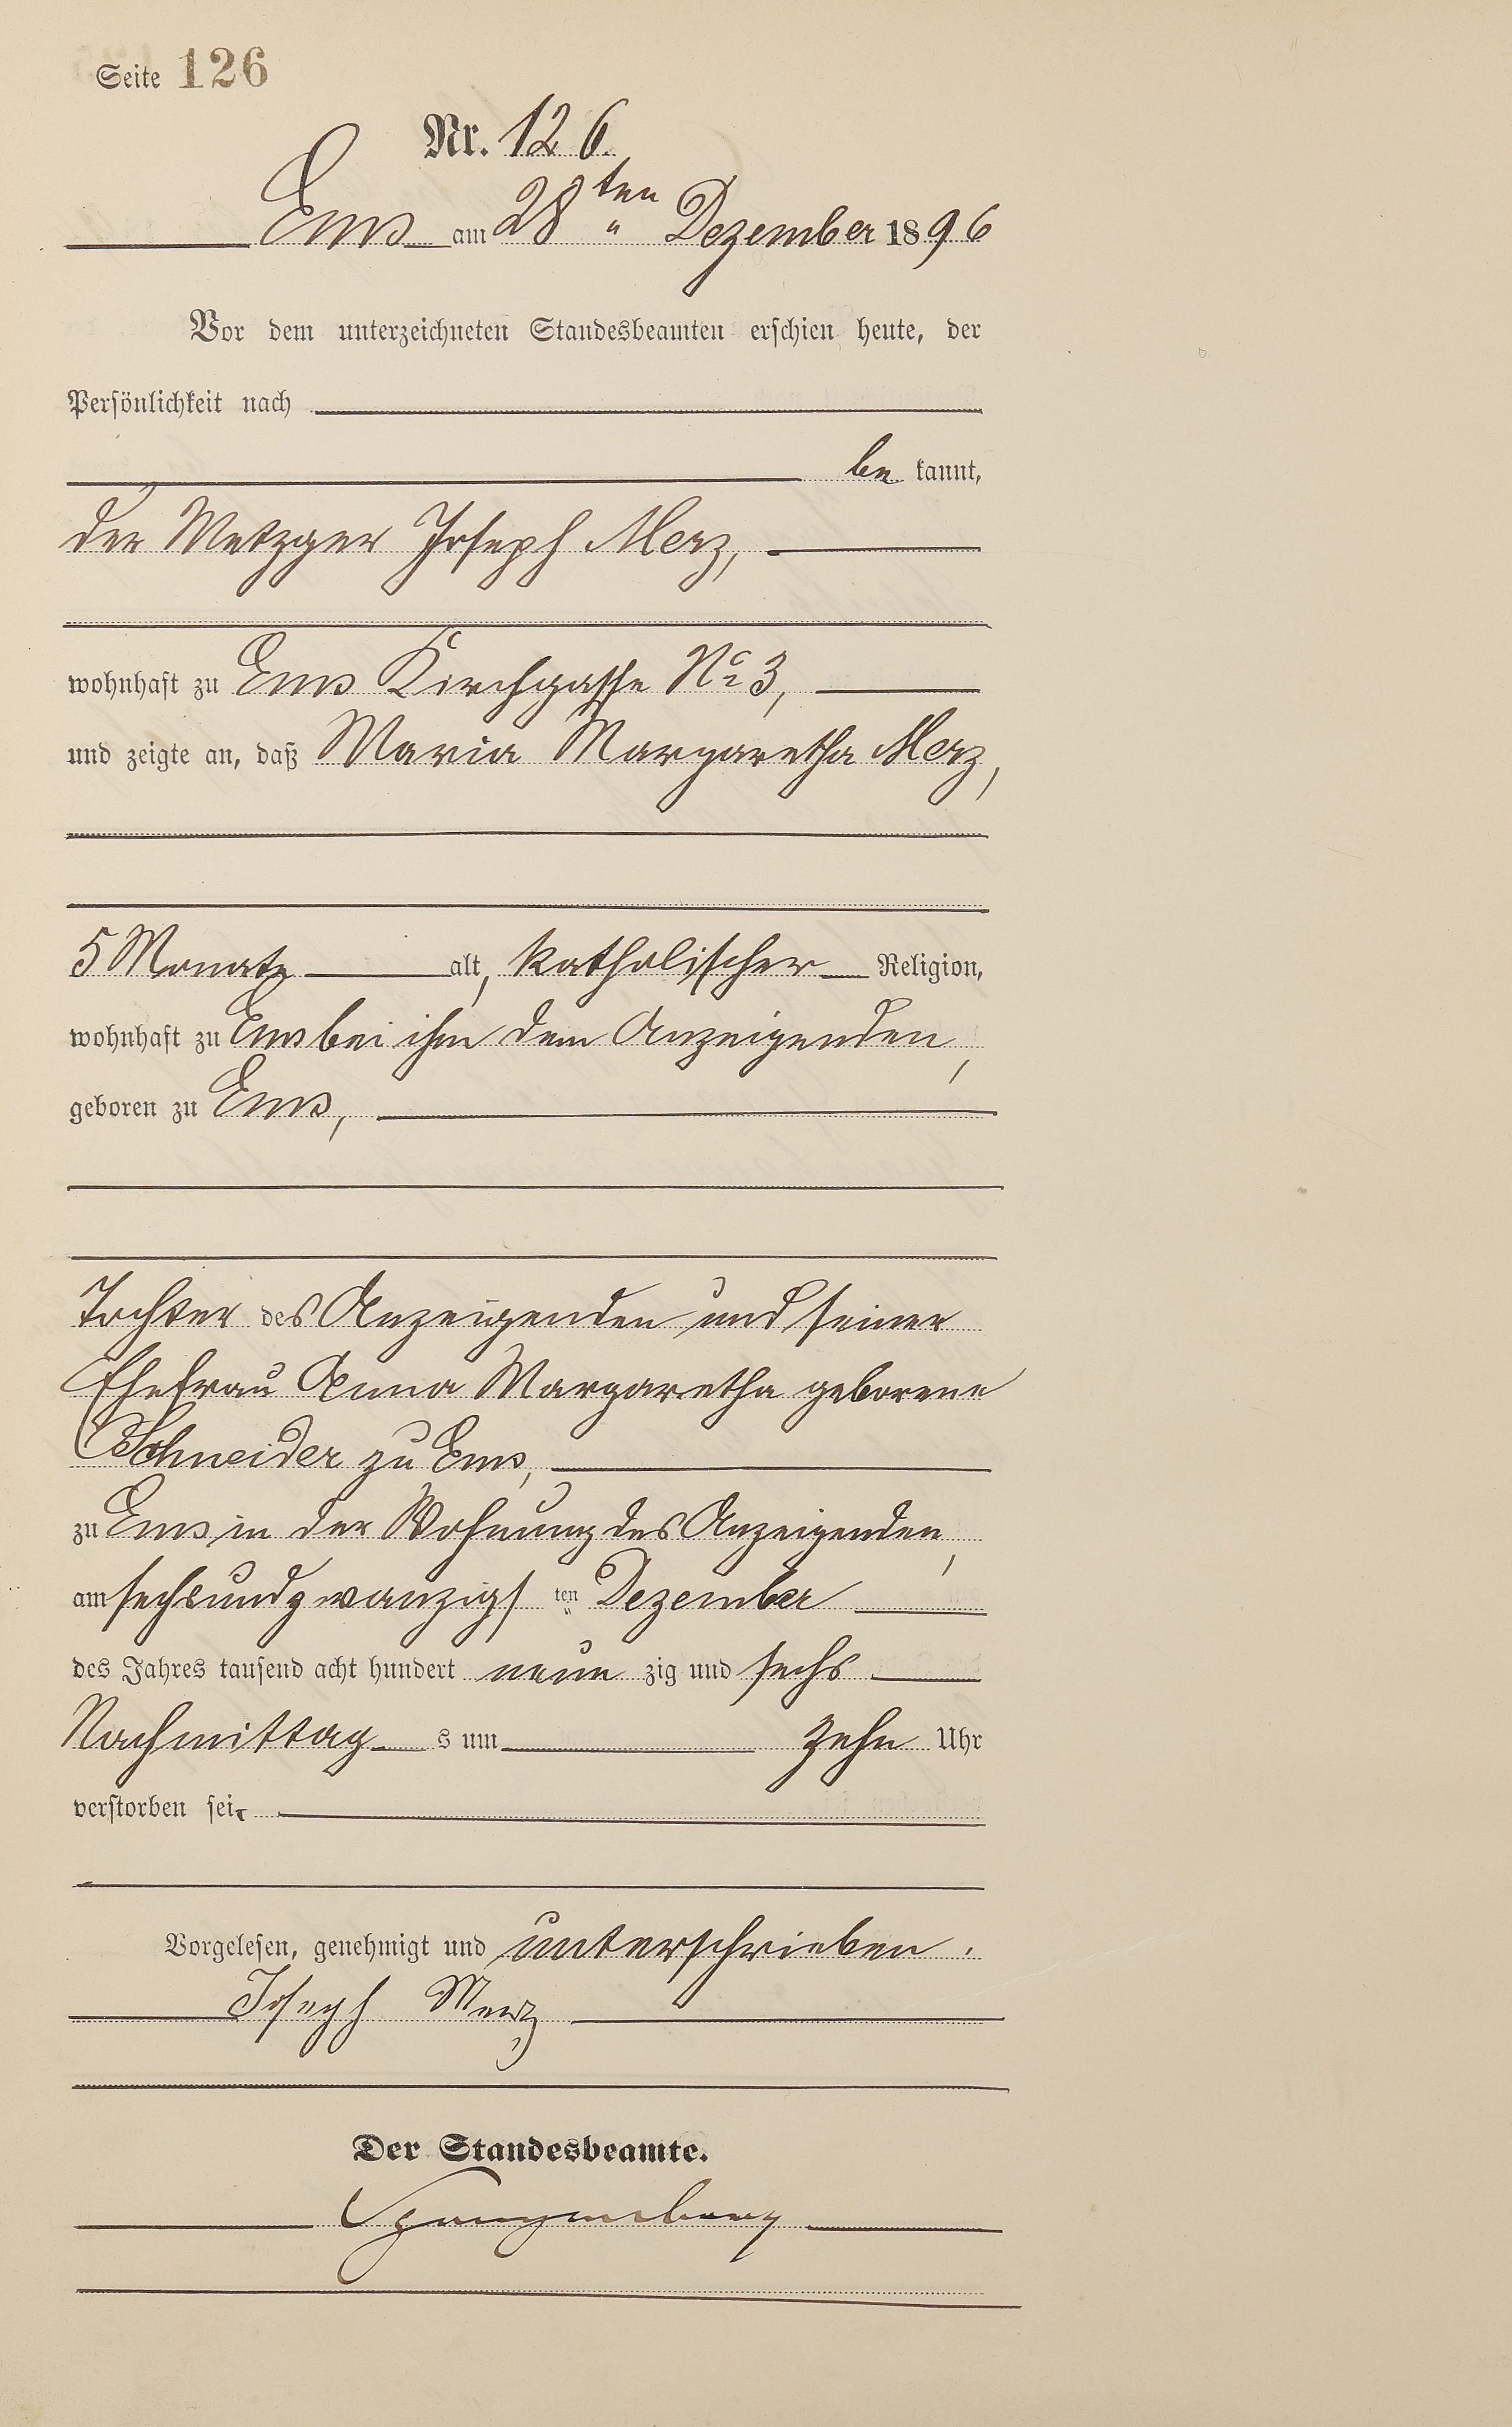 Seite 126
Nr. 126.
Ems am 28ten Dezember 1896
Vor dem unterzeichneten Standesbeamten erschien heute, der
Persönlichkeit nach
be kannt,
der Metzger Joseph Merz,
wohnhaft zu Ems Kirchgasse No 3,
und zeigte an, daß Maria Margaretha Merz,
5 Monate alt, katholischer Religion,
wohnhaft zu Ems bei ihm dem Anzeigenden,
geboren zu Ems,
Tochter des Anzeigenden und seiner
Ehefrau Anna Margaretha geborene
Schneider zu Ems,
zu Ems in der Wohnung des Anzeigenden,
am sechsundzwanzigsten Dezember
des Jahres tausend acht hundert neun zig und sechs
Nachmittags um zehn Uhr
verstorben sei.
Vorgelesen, genehmigt und unterschrieben.
Joseph Merz
Der Standesbeamte.
Spangenberg